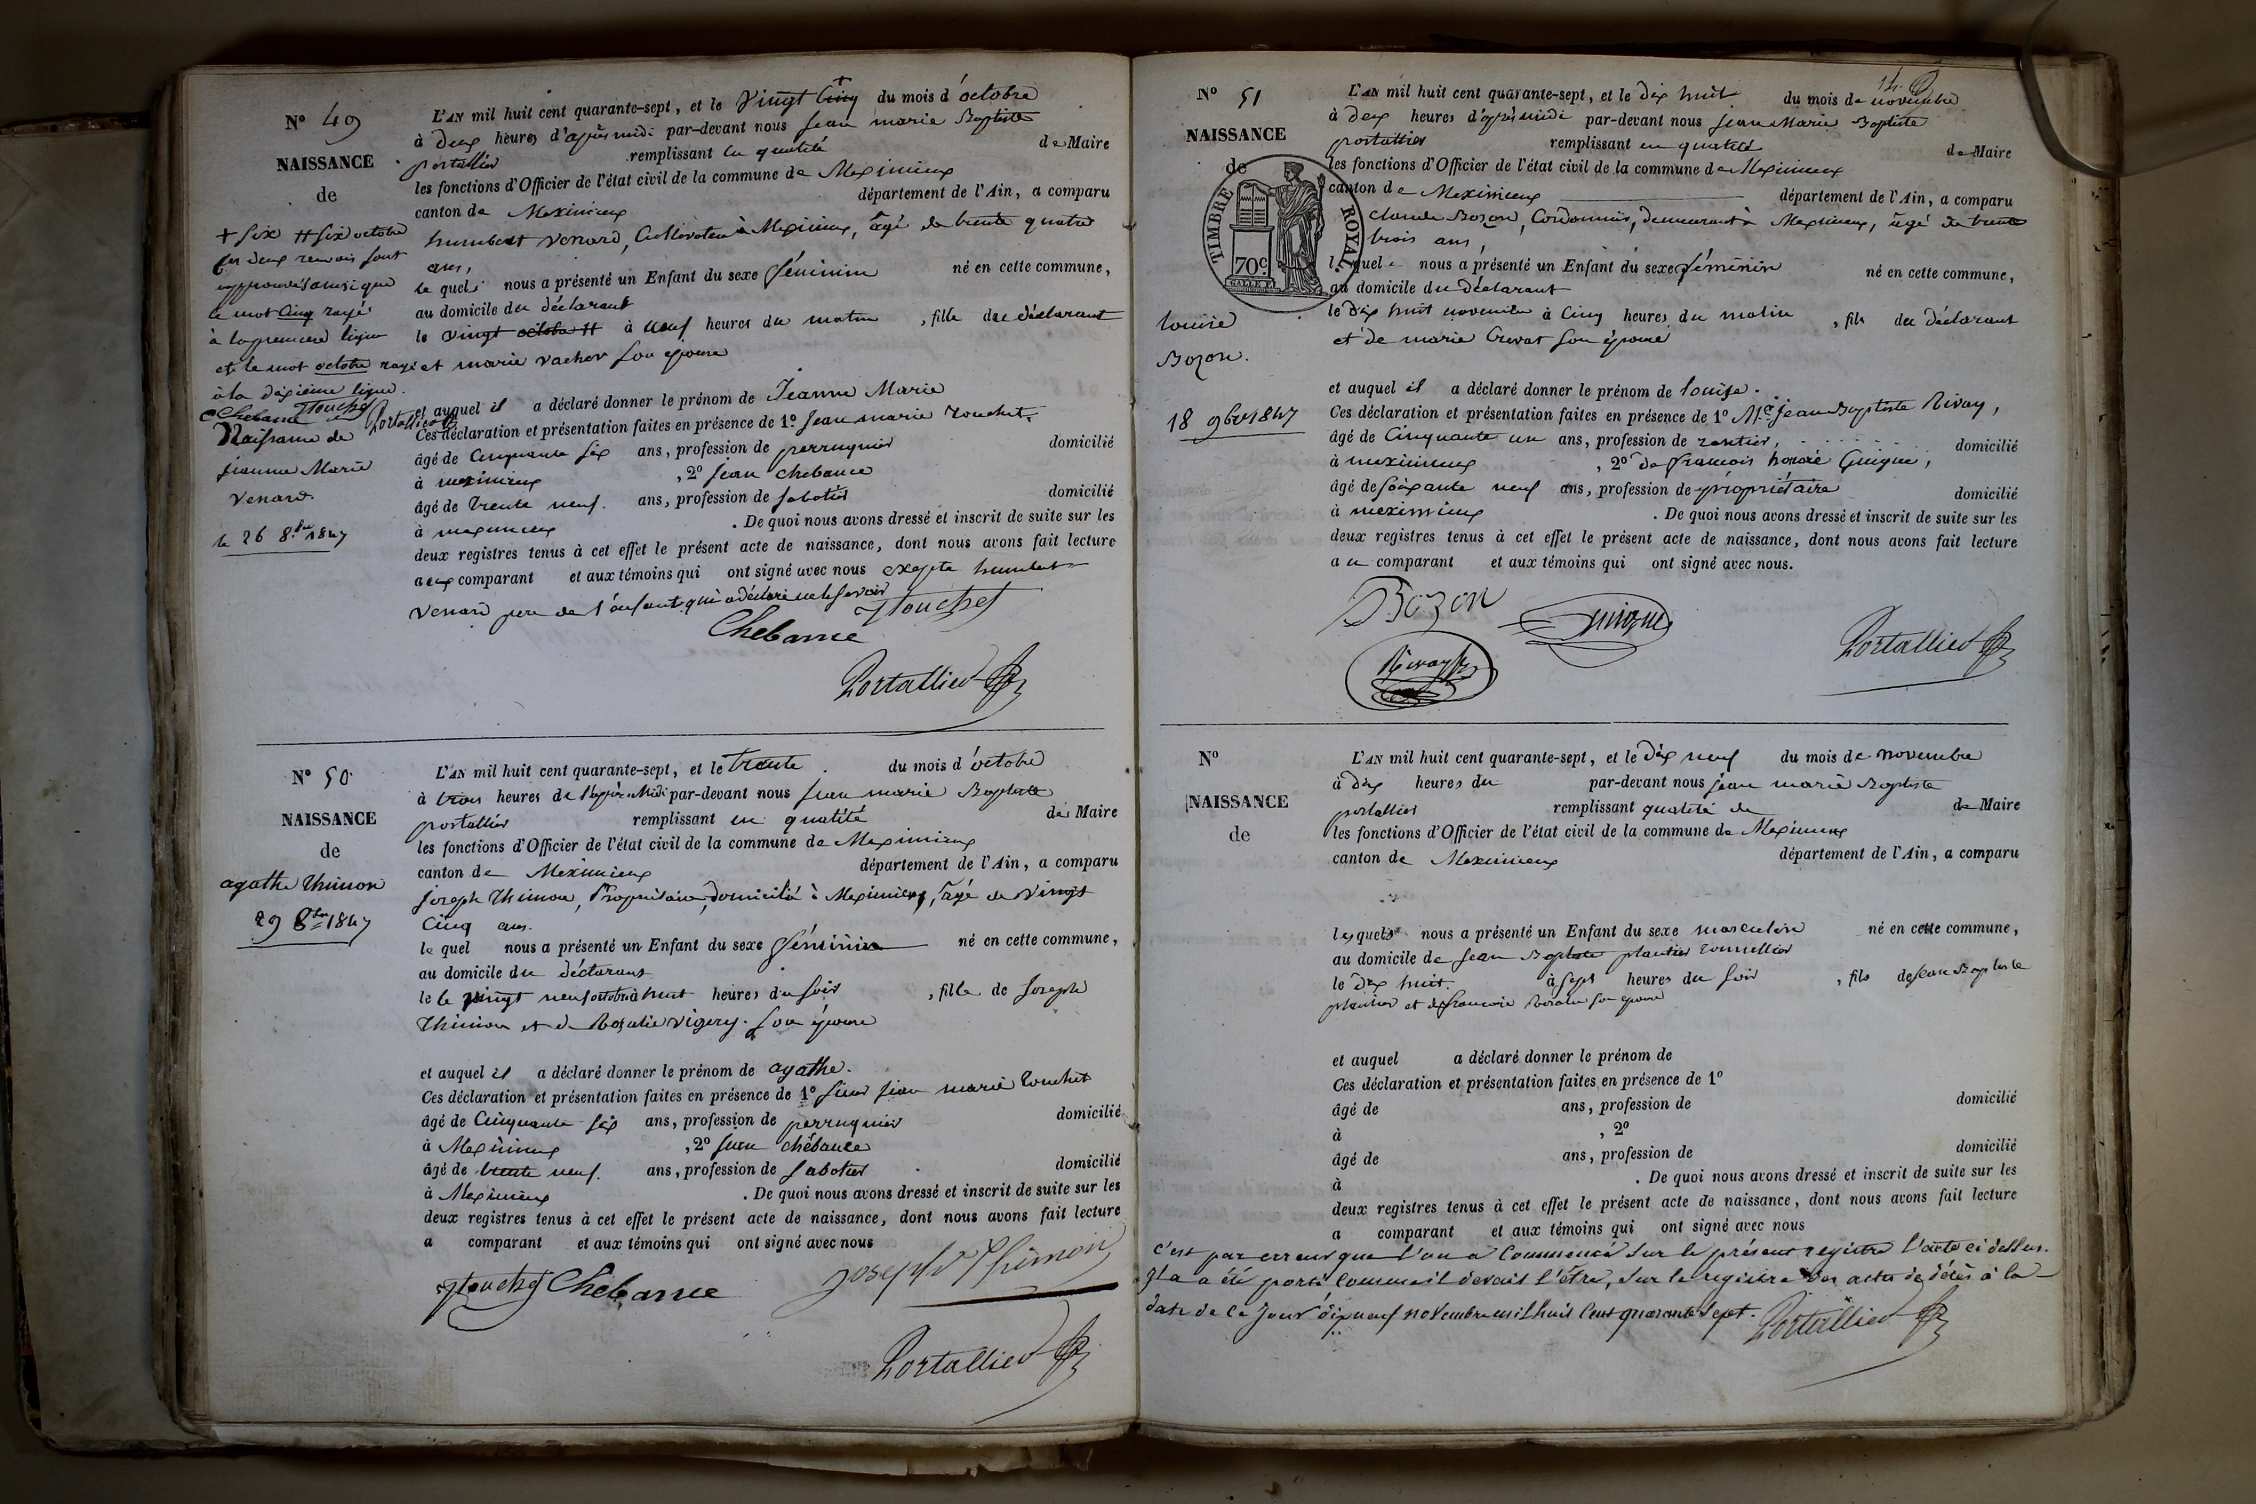 N° 49
NAISSANCE
de
+ six ++ six octobre
les deux renvois sont
approuvés ainsi que
le mot Cinq rayé
à la premiere ligne
et le mot octobre rayé
à la dixième ligne.
Chebance JTouchet Portallier
Naissance de
jeanne Marie
Venard.
le 26 8bre 1847
L'AN mil huit cent quarante-sept, et le vingt Cinq + du mois d'octobre
à Deux heures d'après midi par-devant nous jean marie Baptiste
portallier remplissant en qualité de Maire
les fonctions d'Officier de l'état civil de la commune de Meximieux
canton de Meximieux département de l'Ain, a comparu
humbert Venard, Cultivateur à Meximieux, âgé de trente quatre
ans,
le quel nous a présenté un Enfant du sexe féminin né en cette commune,
au domicile du déclarant
le vingt octobre ++ à neuf heures du matin, fille du déclarant
et marie vacher son épouse
et auquel il a déclaré donner le prénom de Jeanne Marie
Ces déclaration et présentation faites en présence de 1° Jean marie Touchet,
âgé de Cinquante six ans, profession de perruquier domicilié
à meximieux, 2° Jean Chebance
âgé de trente neuf. ans, profession de sabotier domicilié
à meximieux. De quoi nous avons dressé et inscrit de suite sur les
deux registres tenus à cet effet le présent acte de naissance, dont nous avons fait lecture
aux comparant et aux témoins qui ont signé avec nous excepté humbert
Venard père de l'enfant qui a déclaré ne le savoir
JTouchet
Chebance
Portallier
N° 50
NAISSANCE
de
agathe Thimon
29 8bre 1847
L'AN mil huit cent quarante-sept, et le trente du mois d'octobre
à trois heures de l'après Midi par-devant nous Jean marie Baptiste
portallier remplissant en qualité de Maire
les fonctions d'Officier de l'état civil de la commune de Meximieux
canton de Meximieux département de l'Ain, a comparu
joseph Thimon, Propriétaire, domicilié à Meximieux, âgé de Vingt
Cinq ans.
le quel nous a présenté un Enfant du sexe féminin né en cette commune,
au domicile du déclarant
le le vingt neuf octobre à huit heures du soir, fille de Joseph
Thimon et de Rosalie Vigery. son épouse
et auquel il a déclaré donner le prénom de agathe.
Ces déclaration et présentation faites en présence de 1° sieur jean marie Touchet
âgé de Cinquante six ans, profession de perruquier domicilié
à Meximieux, 2° Jean Chébance
âgé de trente neuf. ans, profession de sabotier domicilié
à Meximieux. De quoi nous avons dressé et inscrit de suite sur les
deux registres tenus à cet effet le présent acte de naissance, dont nous avons fait lecture
a comparant et aux témoins qui ont signé avec nous
JTouchet Chebance Joseph Thimon
Portallier
N° 51
NAISSANCE
de
TIMBRE ROYAL
70c
louise
Bozon.
18 9bre 1847
L'AN mil huit cent quarante-sept, et le dix huit du mois de novembre
à deux heures d'après midi par-devant nous jean Marie Baptiste
portallier remplissant en qualité de Maire
les fonctions d'Officier de l'état civil de la commune de Meximieux
canton de Meximieux département de l'Ain, a comparu
claude Bozon, Cordonnier, demeurant à Meximieux, âgé de trente
trois ans,
lequel nous a présenté un Enfant du sexe féminin né en cette commune,
au domicile du déclarant
le dix huit novembre à Cinq heures du matin, fils du déclarant
et de marie Crevat son épouse
et auquel il a déclaré donner le prénom de louise.
Ces déclaration et présentation faites en présence de 1° Mr jean Baptiste Rivay,
âgé de Cinquante un ans, profession de rentier, domicilié
à meximieux, 2° de francois honoré Guigue,
âgé de soixante neuf ans, profession de propriétaire domicilié
à meximieux. De quoi nous avons dressé et inscrit de suite sur les
deux registres tenus à cet effet le présent acte de naissance, dont nous avons fait lecture
au comparant et aux témoins qui ont signé avec nous.
Bozon Guigue
Portallier
Rivay
N°
NAISSANCE
de
L'AN mil huit cent quarante-sept, et le dix neuf du mois de novembre
à dix heures du par-devant nous jean marie Baptiste
portallier remplissant qualité de de Maire
les fonctions d'Officier de l'état civil de la commune de Meximieux
canton de Meximieux département de l'Ain, a comparu
lesquels nous a présenté un Enfant du sexe masculin né en cette commune,
au domicile de jean Baptiste plantier tonnellier
le dix huit. à sept heures du soir, fils de jean Baptiste
plantier et de francoise son épouse
et auquel a déclaré donner le prénom de
Ces déclaration et présentation faites en présence de 1°
âgé de ans, profession de domicilié
à , 2°
âgé de ans, profession de domicilié
à . De quoi nous avons dressé et inscrit de suite sur les
deux registres tenus à cet effet le présent acte de naissance, dont nous avons fait lecture
a comparant et aux témoins qui ont signé avec nous
c'est par erreur que l'on a Commencé sur le présent registre l'acte ci dessus.
Il a été porté comme il devait l'être, sur le registre des actes de décès à la
date de ce jour dix neuf novembre mil huit cent quarante sept. Portallier